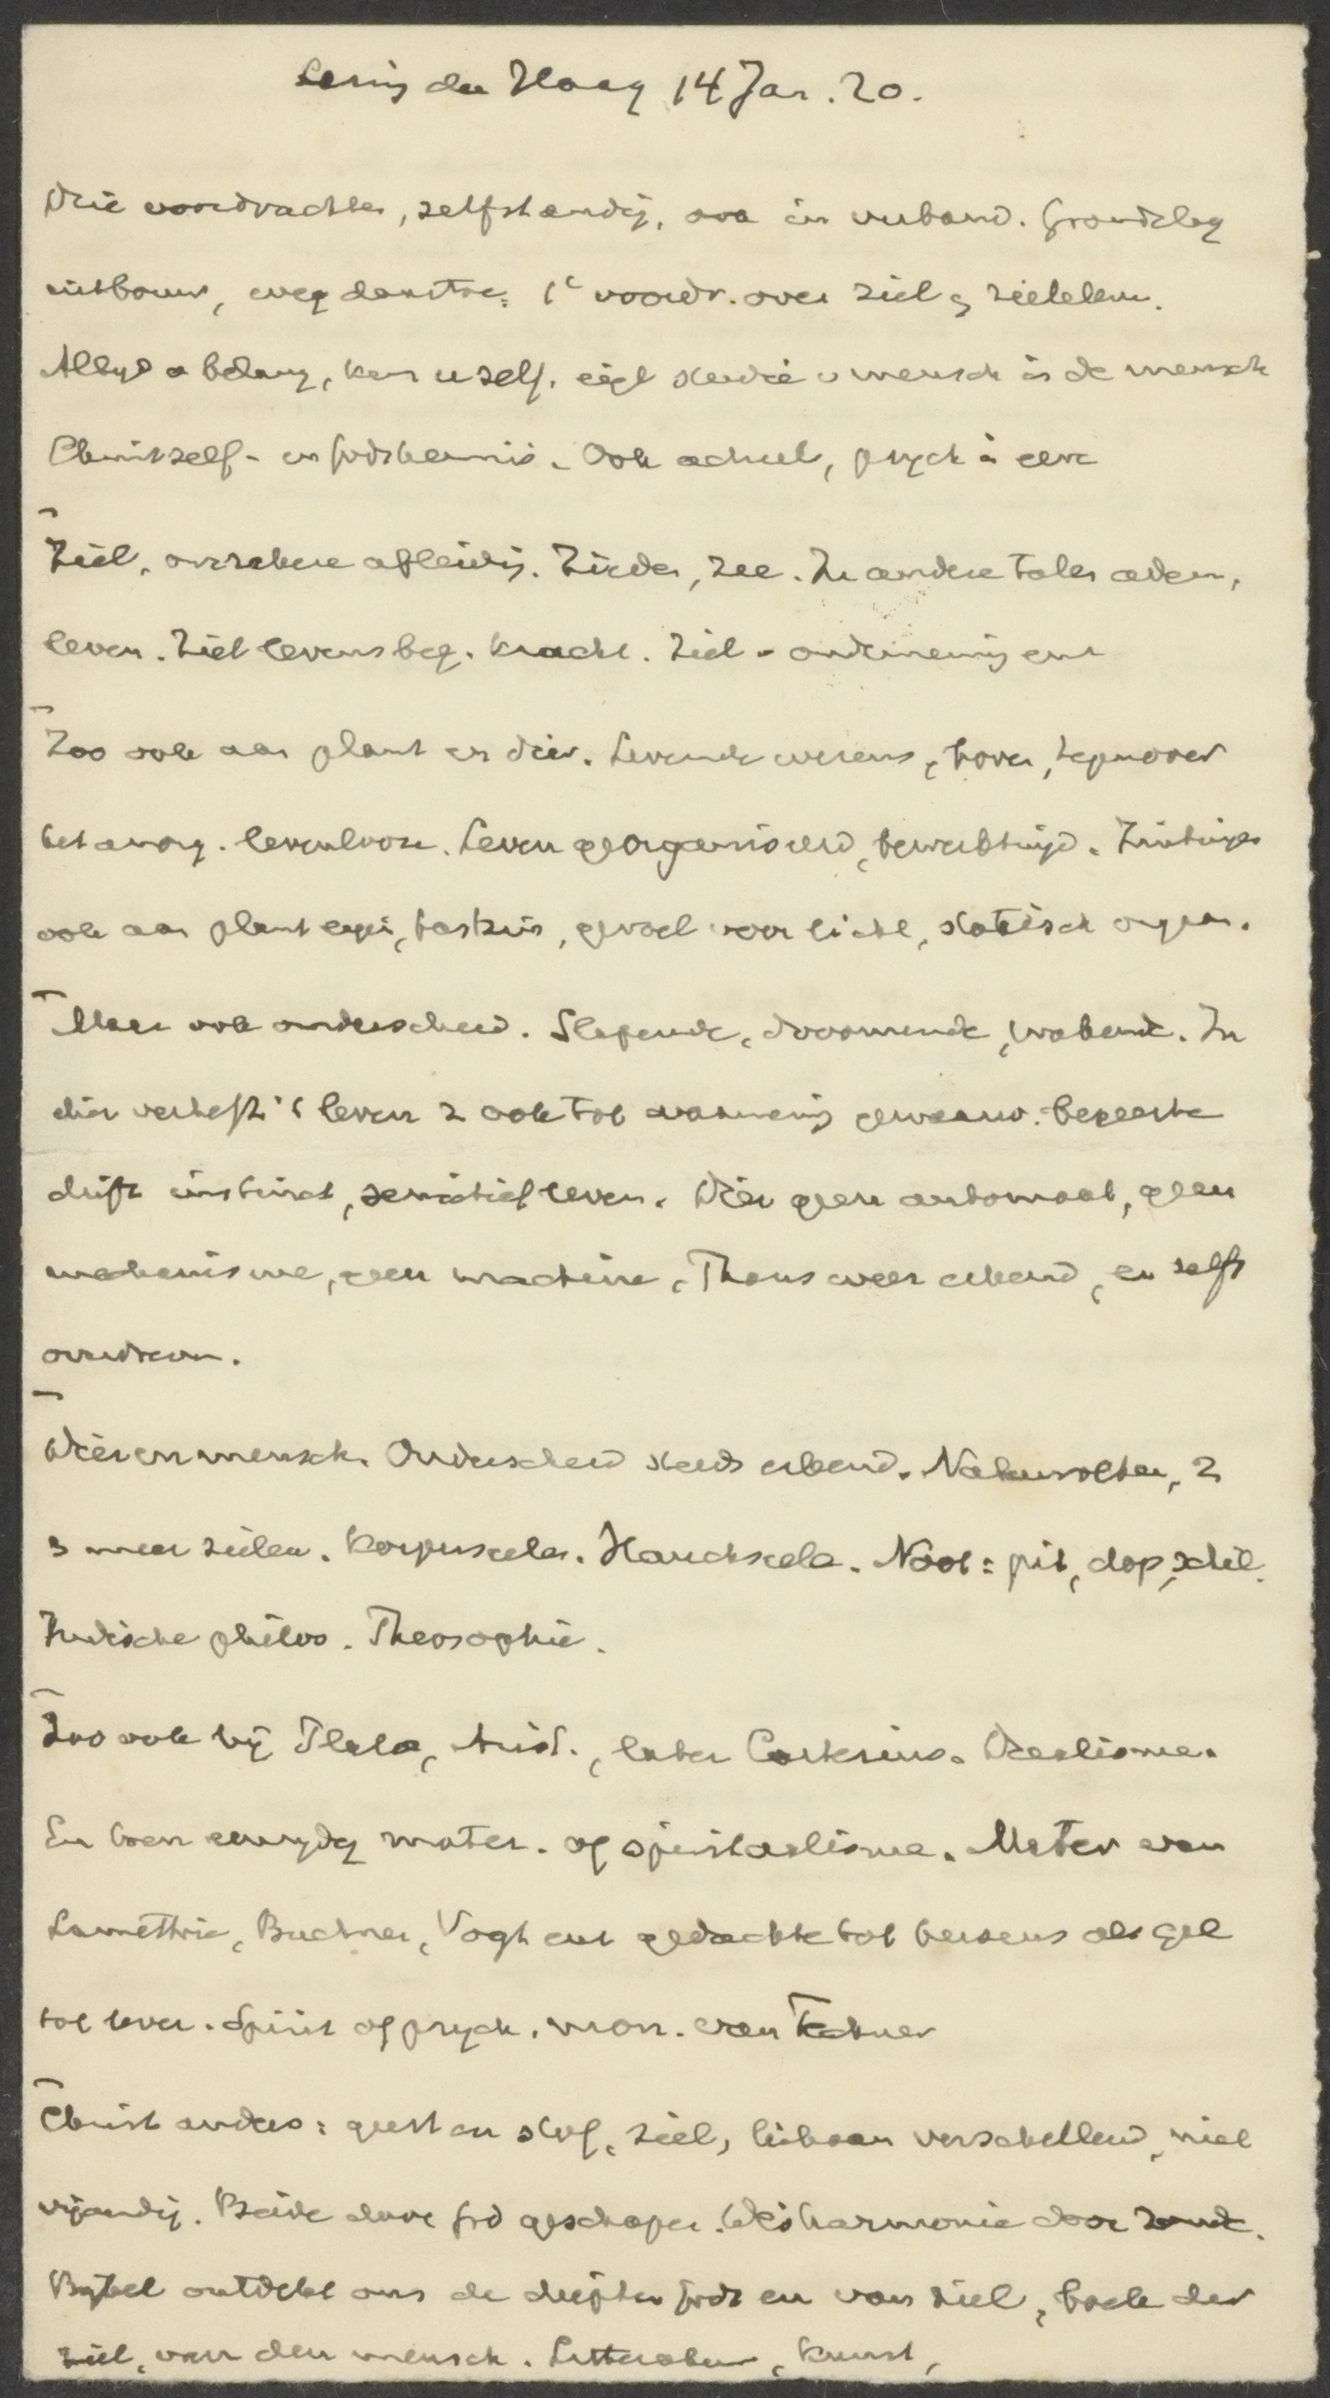 Lezing den Haag 14 Jan. 20.
Drie voordrachten, zelfstandig, ook in verband. Grondslag
uitbouw, 1e voordr. over ziel en zieleleven.
Altijd v belang, ken u zelf, eigl studie v mensch is de mensch
Christ zelf- en Godskennis. Ook actueel, psych is
Ziel, onzekere afleiding. Zieden, zee. In andere talen adem,
leven. Ziel levensbeg. kracht. Ziel v onderneming enz
Zoo ook aan plant en dier. Levende wezens, boven, tegenover
het anorg. levenlooze. Leven georganiseerd, bewerktuigd. Zintuigen
ook aan plant eigen, tastzin, gevoel voor licht, statisch orgaan.
Maar ook onderscheid. Slapende, droomende, wakende. In
dier verheft 't leven z ook tot waarneming gewaarw. begeerte
drift instinct, sensitief leven. Dier geen automaat, geen
mechanisme, geen machine. Thans weer erkend, en zelfs
overdreven.
Dier en mensch. Onderscheid steeds erkend. Natuurvolken, 2
3 meer zielen. Körperseele. Hauchseele. Noot = pit, dop, schil.
Indische philos. Theosophie.
Zoo ook bij Plato, Arist., later Cartesius. Dualisme.
En toen eenzijdig mater. of spiritualisme. Mater van
Lamettrie, Buchner, Vogt enz gedachte tot hersens als gal
tot lever. Spirit of psych. mon. van Fechner
Christ anders: geest en stof, ziel, lichaam verschillend, niet
vijandig. Beide door God geschapen. Disharmonie door zonde.
Bijbel ontdekt ons de diepten Gods en van ziel, boek der
ziel, van den mensch. Litteratuur, kunst,